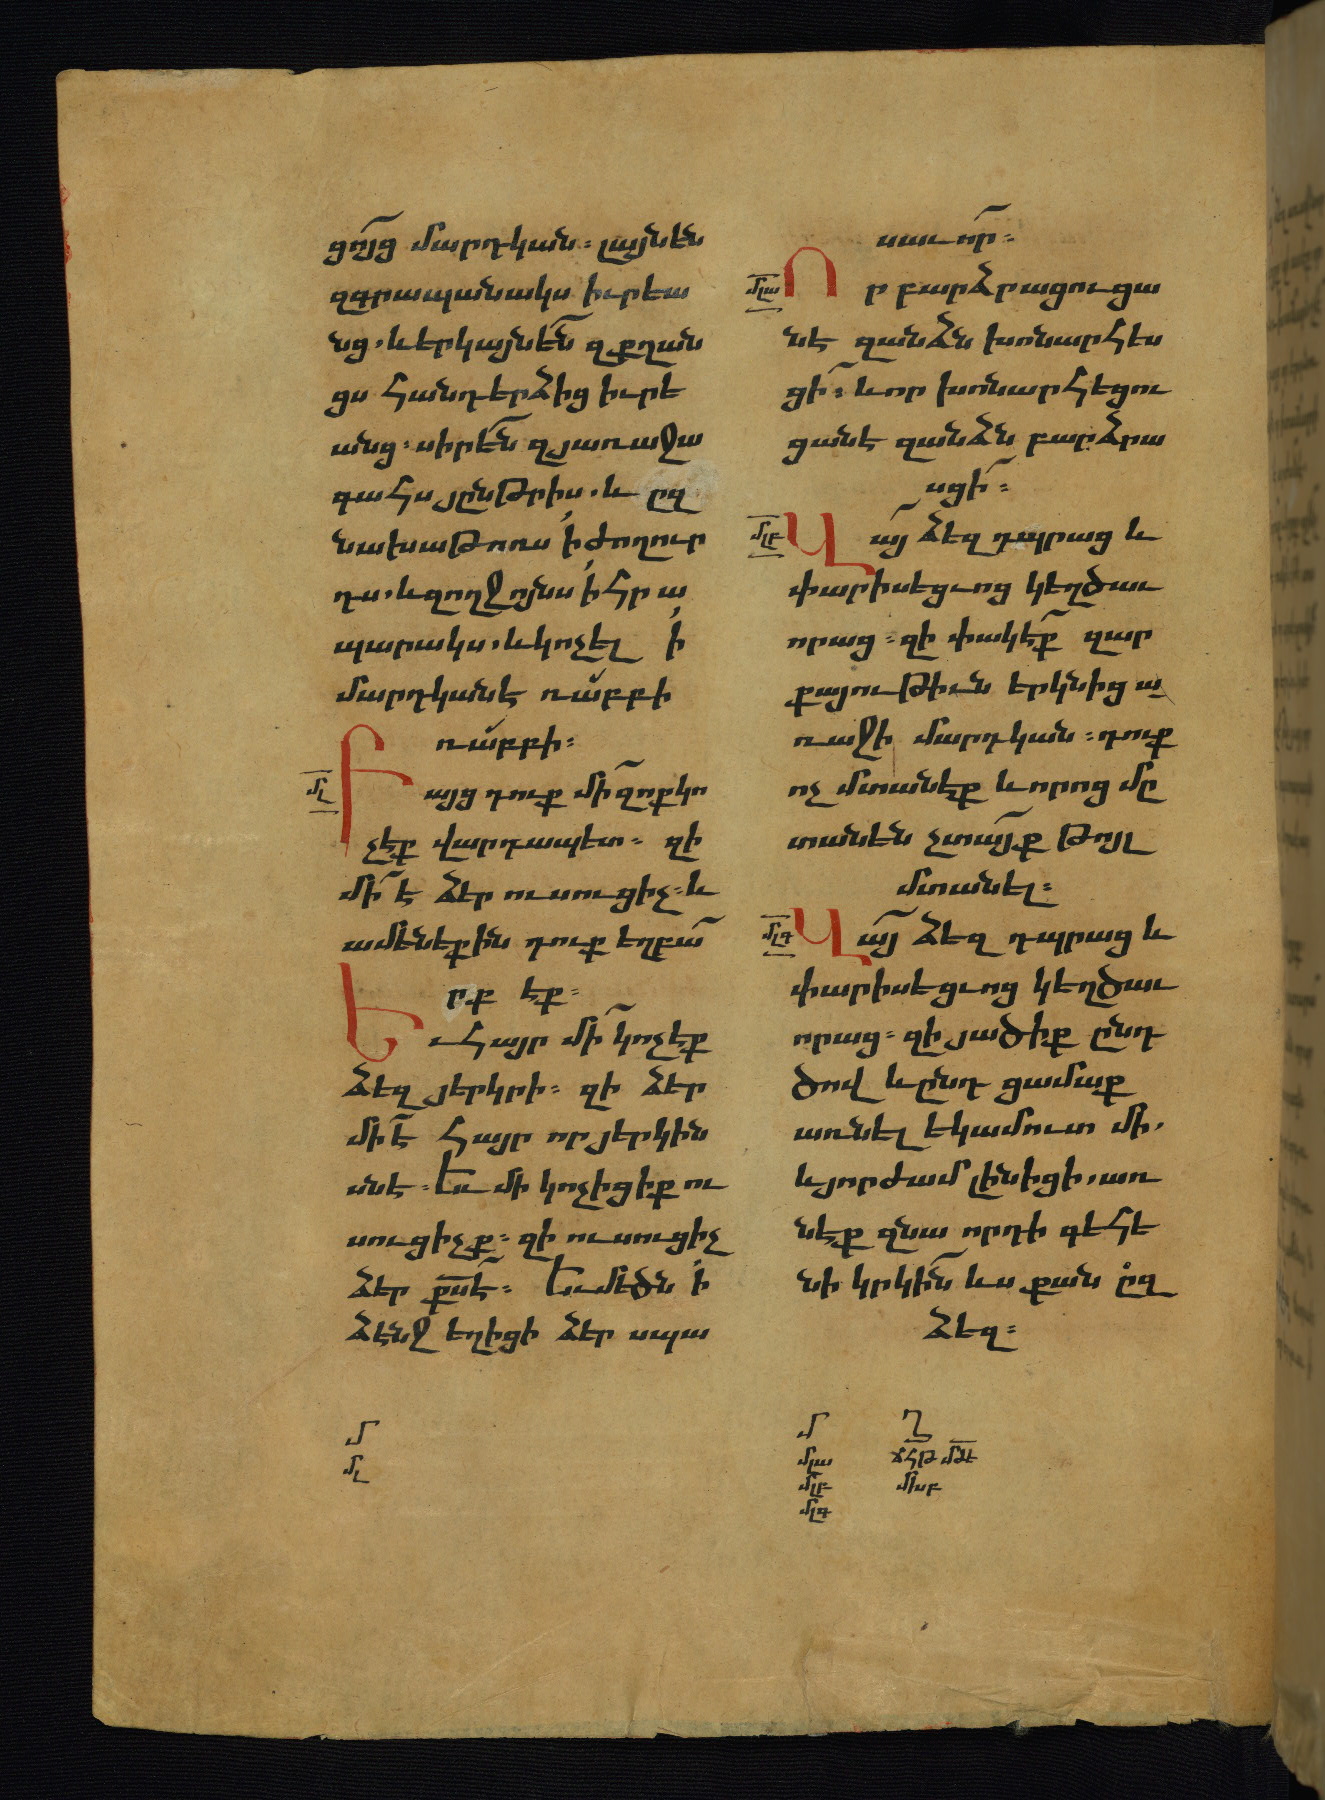 ցո՜յց մարդկան։ լայնեն
զգրապանակս իւրեա
նց. և երկայնե՜ն զքղան
ցս հանդերձից իւրե
անց։ սիրե՜ն զյառաջա
գահս յընթրիս. և ըզ
նախաթոռս ի ժողուր
դս. և զողջոյնս ի հրա
պարակս. և կոչել ի
մարդկանէ ռաբբի
ռաբբի։
մլ Բայց դուք մի՜ զոք կո
չէք վարդապետ։ զի
մի՜ է ձեր ուսուցիչ։ և
ամենեքին դուք եղբա՜
րք էք։
Եւ հայր մի՜ կոչէք
ձեզ յերկրի։ զի ձեր
մի՜ է հայր որ յերկին
սնէ։ Եւ մի կոչիցիք ու
սուցիչք։ զի ուսուցիչ
ձեր քս է։ Եւ մեծն ի
ձէնջ եղիցի ձեր սպա
սաւո՜ր։
մլա Որ բարձրացուցա
նէ զանձն խոնարհես
ցի՜։ և որ խոնարհեցու
ցանէ զանձն բարձրա
սցի՜։
մլբ Վա՜յ ձեզ դպրաց և
փարիսեցւոց կեղծաւ
որաց։ զի փակէ՜ք զար
քայութիւն երկնից ա
ռաջի մարդկան։ դուք
ոչ մտանէք և որոց մը
տանեն չտա՜յք թոյլ
մտանել։
մլգ Վա՜յ ձեզ դպրաց և
փարիսեցւոց կեղծաւ
որաց։ զի յածիք ընդ
ծով և ընդ ցամաք
առնել եկամուտ մի.
և յորժամ լինիցի. առ
նէք զնա որդի գեհե
նի կրկի՜ն ևս քան ըզ
ձեզ։
մ
մլ
մ Ղ
մլա ճհթ մժէ
մլբ
մլգ